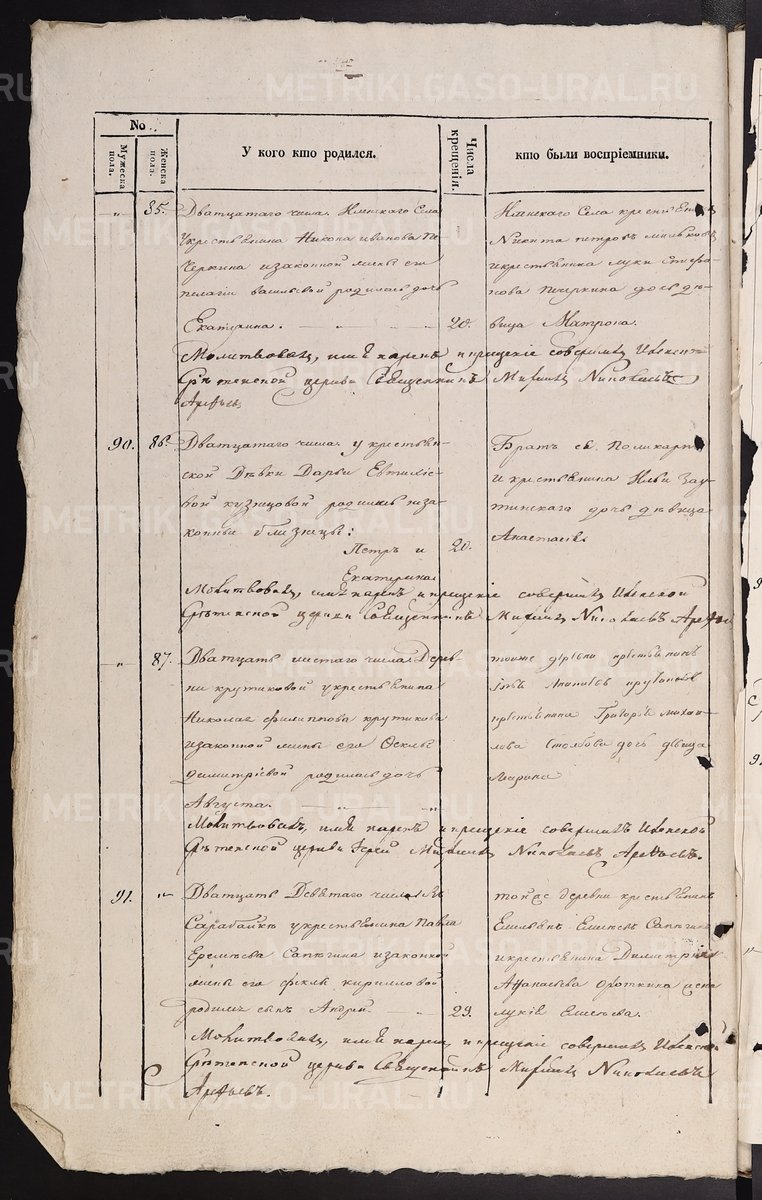 METRIKI.GASO-URAL.RU
No
Мужеска пола.
Женска пола.
У кого кто родился.
Числа крещенія.
кто были воспріемники.
85.
Дватцатаго числа. Села
укрестьянина Никона иванова пе-
черкина изаконной жены его
пелагіи васильевой родилась дочь
Екатерина.
20.
Села
Никита петровъ
икрестьянина луки Стефа-
нова печеркина дочь дѣ-
вица Матрона.
Молитвовалъ, имя нарекъ икрещеніе совершилъ
Срѣтенской церкви Священникъ Михаилъ Николаевъ
Арефьевъ
90.
86.
Дватцатаго числа. у крестьян-
ской Дѣвки Дарьи Евтихіе-
вой кузнцовой родились неза-
конные близнецы:
Петръ и
Екатерина
20.
Братъ ея Поликарпъ
и крестьянина Ильи
дочь дѣвица
Анастасія.
Молитвовалъ, имя нарекъ икрещеніе совершилъ
Срѣтенской церкви Священникъ Михаилъ Николаевъ
87.
Дватцать шестаго числа Дерев-
ни крутиковой укрестьянина
Николая филиппова крутикова
изаконной жены его Феклы
димитріевой родилась дочь
Августа.
тоиже дѣрѣвни крѣстьянинъ
крѣстьянина Григорья михаи-
лова Столбова дочь дѣвица
Марина
Молитвовалъ, имя нарекъ икрещеніе совершилъ
Срѣтенской церкви Іерей Михаилъ Николаевъ Арефьевъ.
91.
Дватцать Девятаго числа въ
Сарабайкѣ укрестьянина Павла
Еремѣева Сапогина изаконной
жены его феклы кирилловой
родился сынъ Андрей.
29.
тойже деревни крестьянинъ
Сапогинъ
икрестьянина Димитрія
Афанасьева жена
Молитвовалъ, имя нарекъ икрещеніе совершилъ
Срѣтенской церкви Священникъ Михаилъ Николаевъ
Арефьевъ.